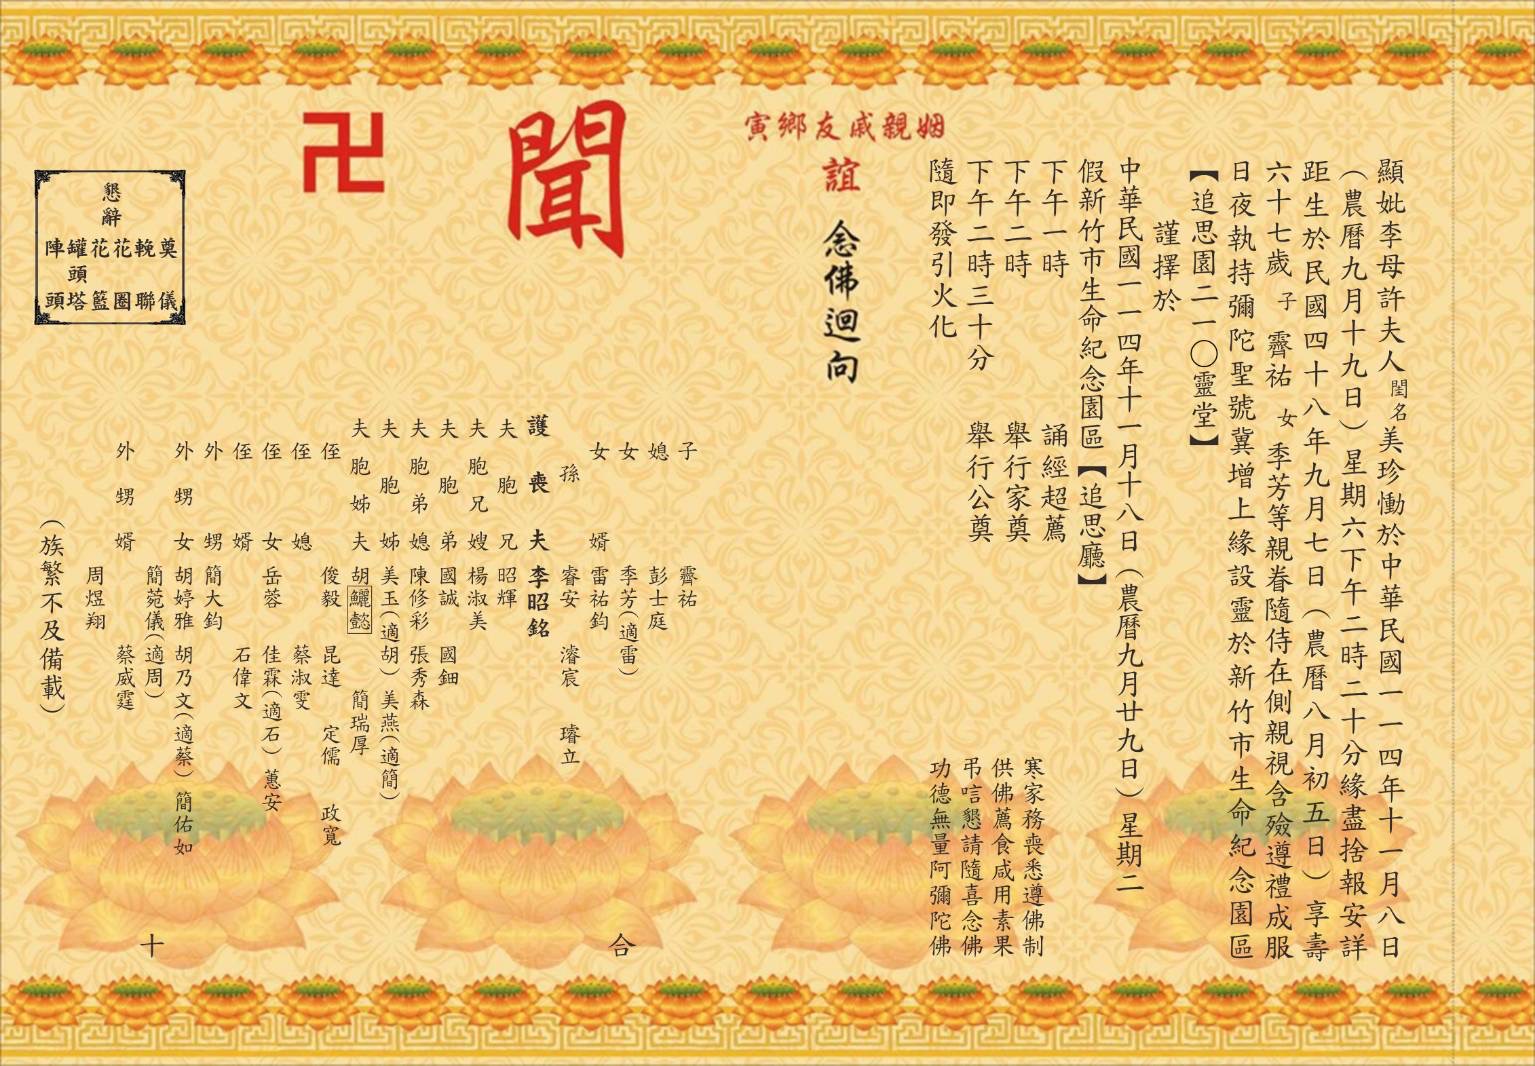 顯妣李母許夫人閨名美珍慟於中華民國一一四年十一月八日
（農曆九月十九日）星期六下午二時二十分緣盡捨報安詳
距生於民國四十八年九月七日（農曆八月初五日）享壽
六十七歲 子 霽祐 女 季芳等親眷隨侍在側親視含殮遵禮成服
日夜執持彌陀聖號冀增上緣設靈於新竹市生命紀念園區
【追思園二一〇靈堂】
謹擇於
中華民國一一四年十一月十八日（農曆九月廿九日）星期二
假新竹市生命紀念園區【追思廳】
下午一時 誦經超薦
下午二時 舉行家奠
下午二時三十分 舉行公奠
隨即發引火化
寒家務喪悉遵佛制
供佛薦食咸用素果
弔唁懇請隨喜念佛
功德無量阿彌陀佛
姻親戚友鄉寅
誼
念佛迴向
聞
卍
子 霽祐
媳 彭士庭
女 季芳(適雷)
女婿 雷祐鈞
孫 睿安 濬宸 璿立
護喪夫 李昭銘
夫胞兄 昭輝
夫胞兄嫂 楊淑美
夫胞弟 國誠 國鈿
夫胞弟媳 陳修彩 張秀森
夫胞姊 美玉(適胡) 美燕(適簡)
夫胞姊夫 胡鱺懿 簡瑞厚
侄 俊毅 昆達 定儒 政寬
侄媳 蔡淑雯
侄女 岳蓉 佳霖(適石) 蕙安
侄婿 石偉文
外甥 簡大鈞
外甥女 胡婷雅 胡乃文(適蔡) 簡佑如
簡菀儀(適周)
外甥婿 蔡威霆
周煜翔
（族繁不及備載）
合十
懇辭
奠儀
輓聯
花圈
花籃
罐頭塔
陣頭